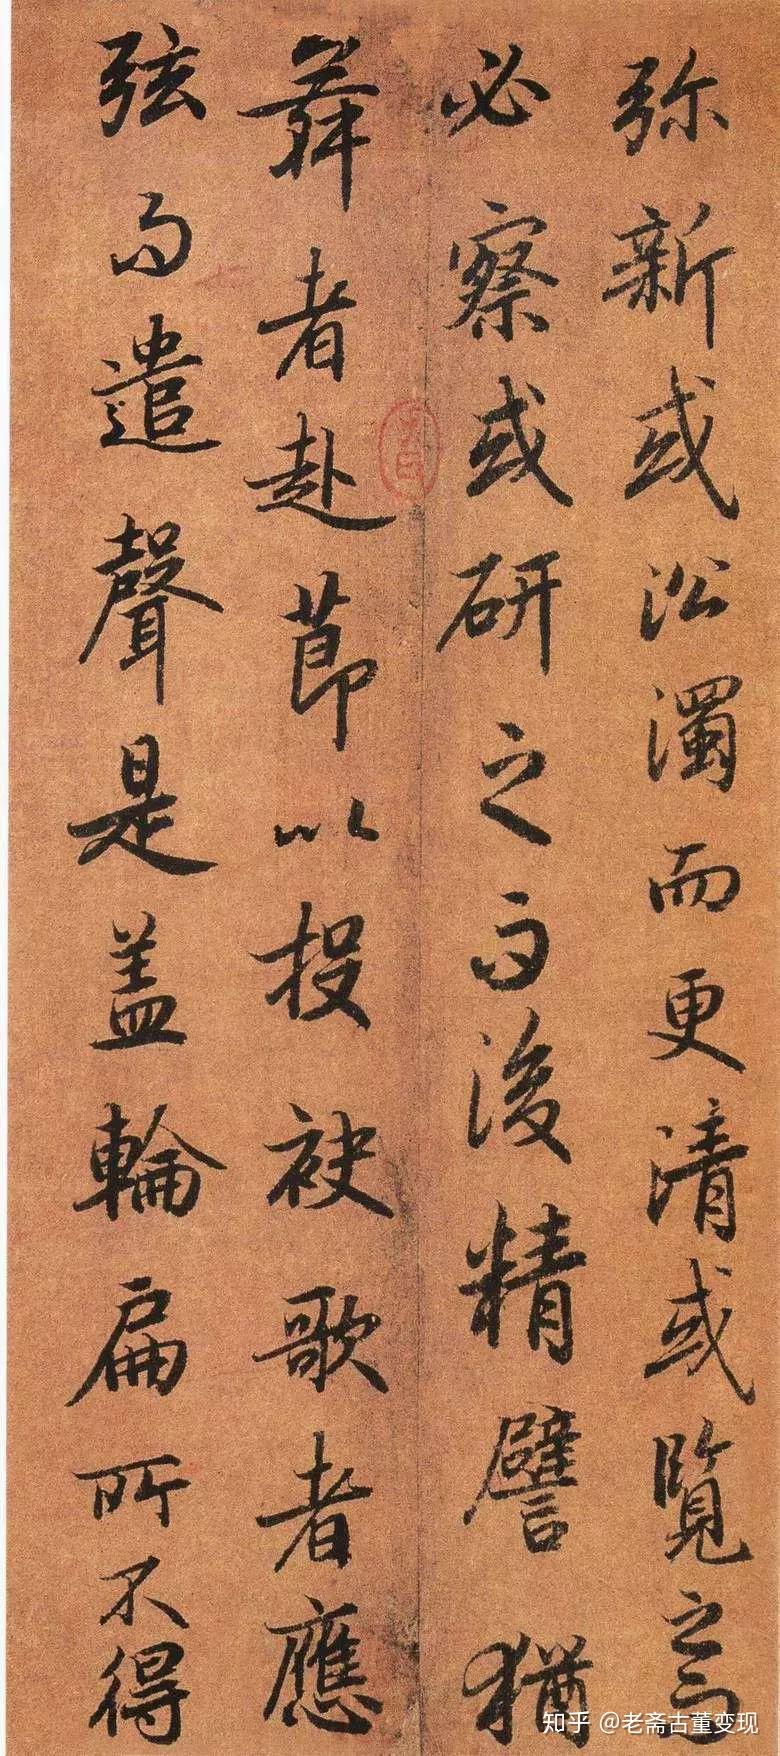 弥新或沿濁而更清或覽之而
必察或研之而後精譬猶
舞者赴莭以投袂歌者應
弦而遣聲是盖輪扁所不得
知乎 @老斋古董变现